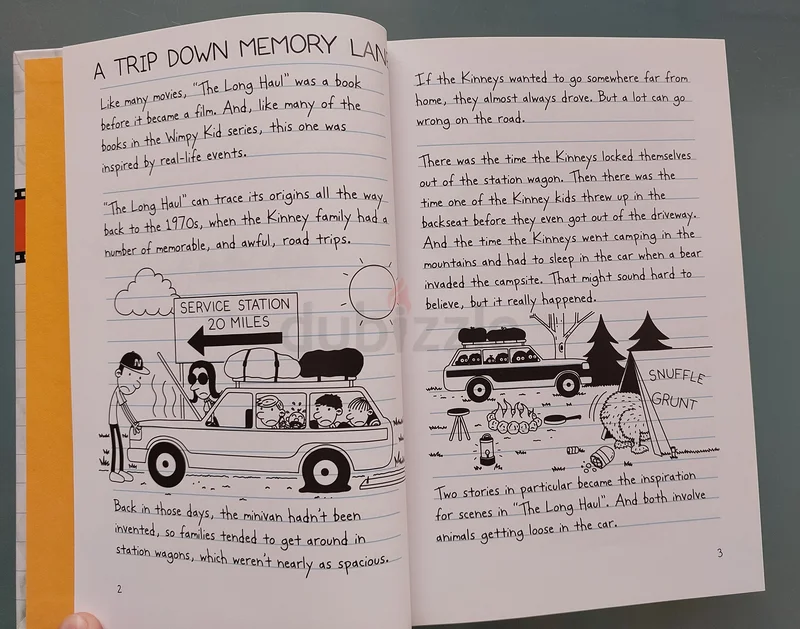 A TRIP DOWN MEMORY LAN
Like many movies, "The Long Haul" was a book
before it became a film. And, like many of the
books in the Wimpy Kid series, this one was
inspired by real-life events.
"The Long Haul" can trace its origins all the way
back to the 1970s, when the Kinney family had a
number of memorable, and awful, road trips.
SERVICE STATION
20 MILES
N
Back in those days, the minivan hadn't been
invented, so families tended to get around in
station wagons, which weren't nearly as spacious.
2
If the Kinneys wanted to go somewhere far from
home, they almost always drove. But a lot can go
wrong on the road.
There was the time the Kinneys locked themselves
out of the station wagon. Then there was the
time one of the Kinney kids threw up in the
backseat before they even got out of the driveway.
And the time the Kinneys went camping in the
mountains and had to sleep in the car when a bear
invaded the campsite. That might sound hard to
believe, but it really happened.
SNUFFLE
GRUNT
Two stories in particular became the inspiration
for scenes in "The Long Haul". And both involve
animals getting loose in the car.
3
dubizzle